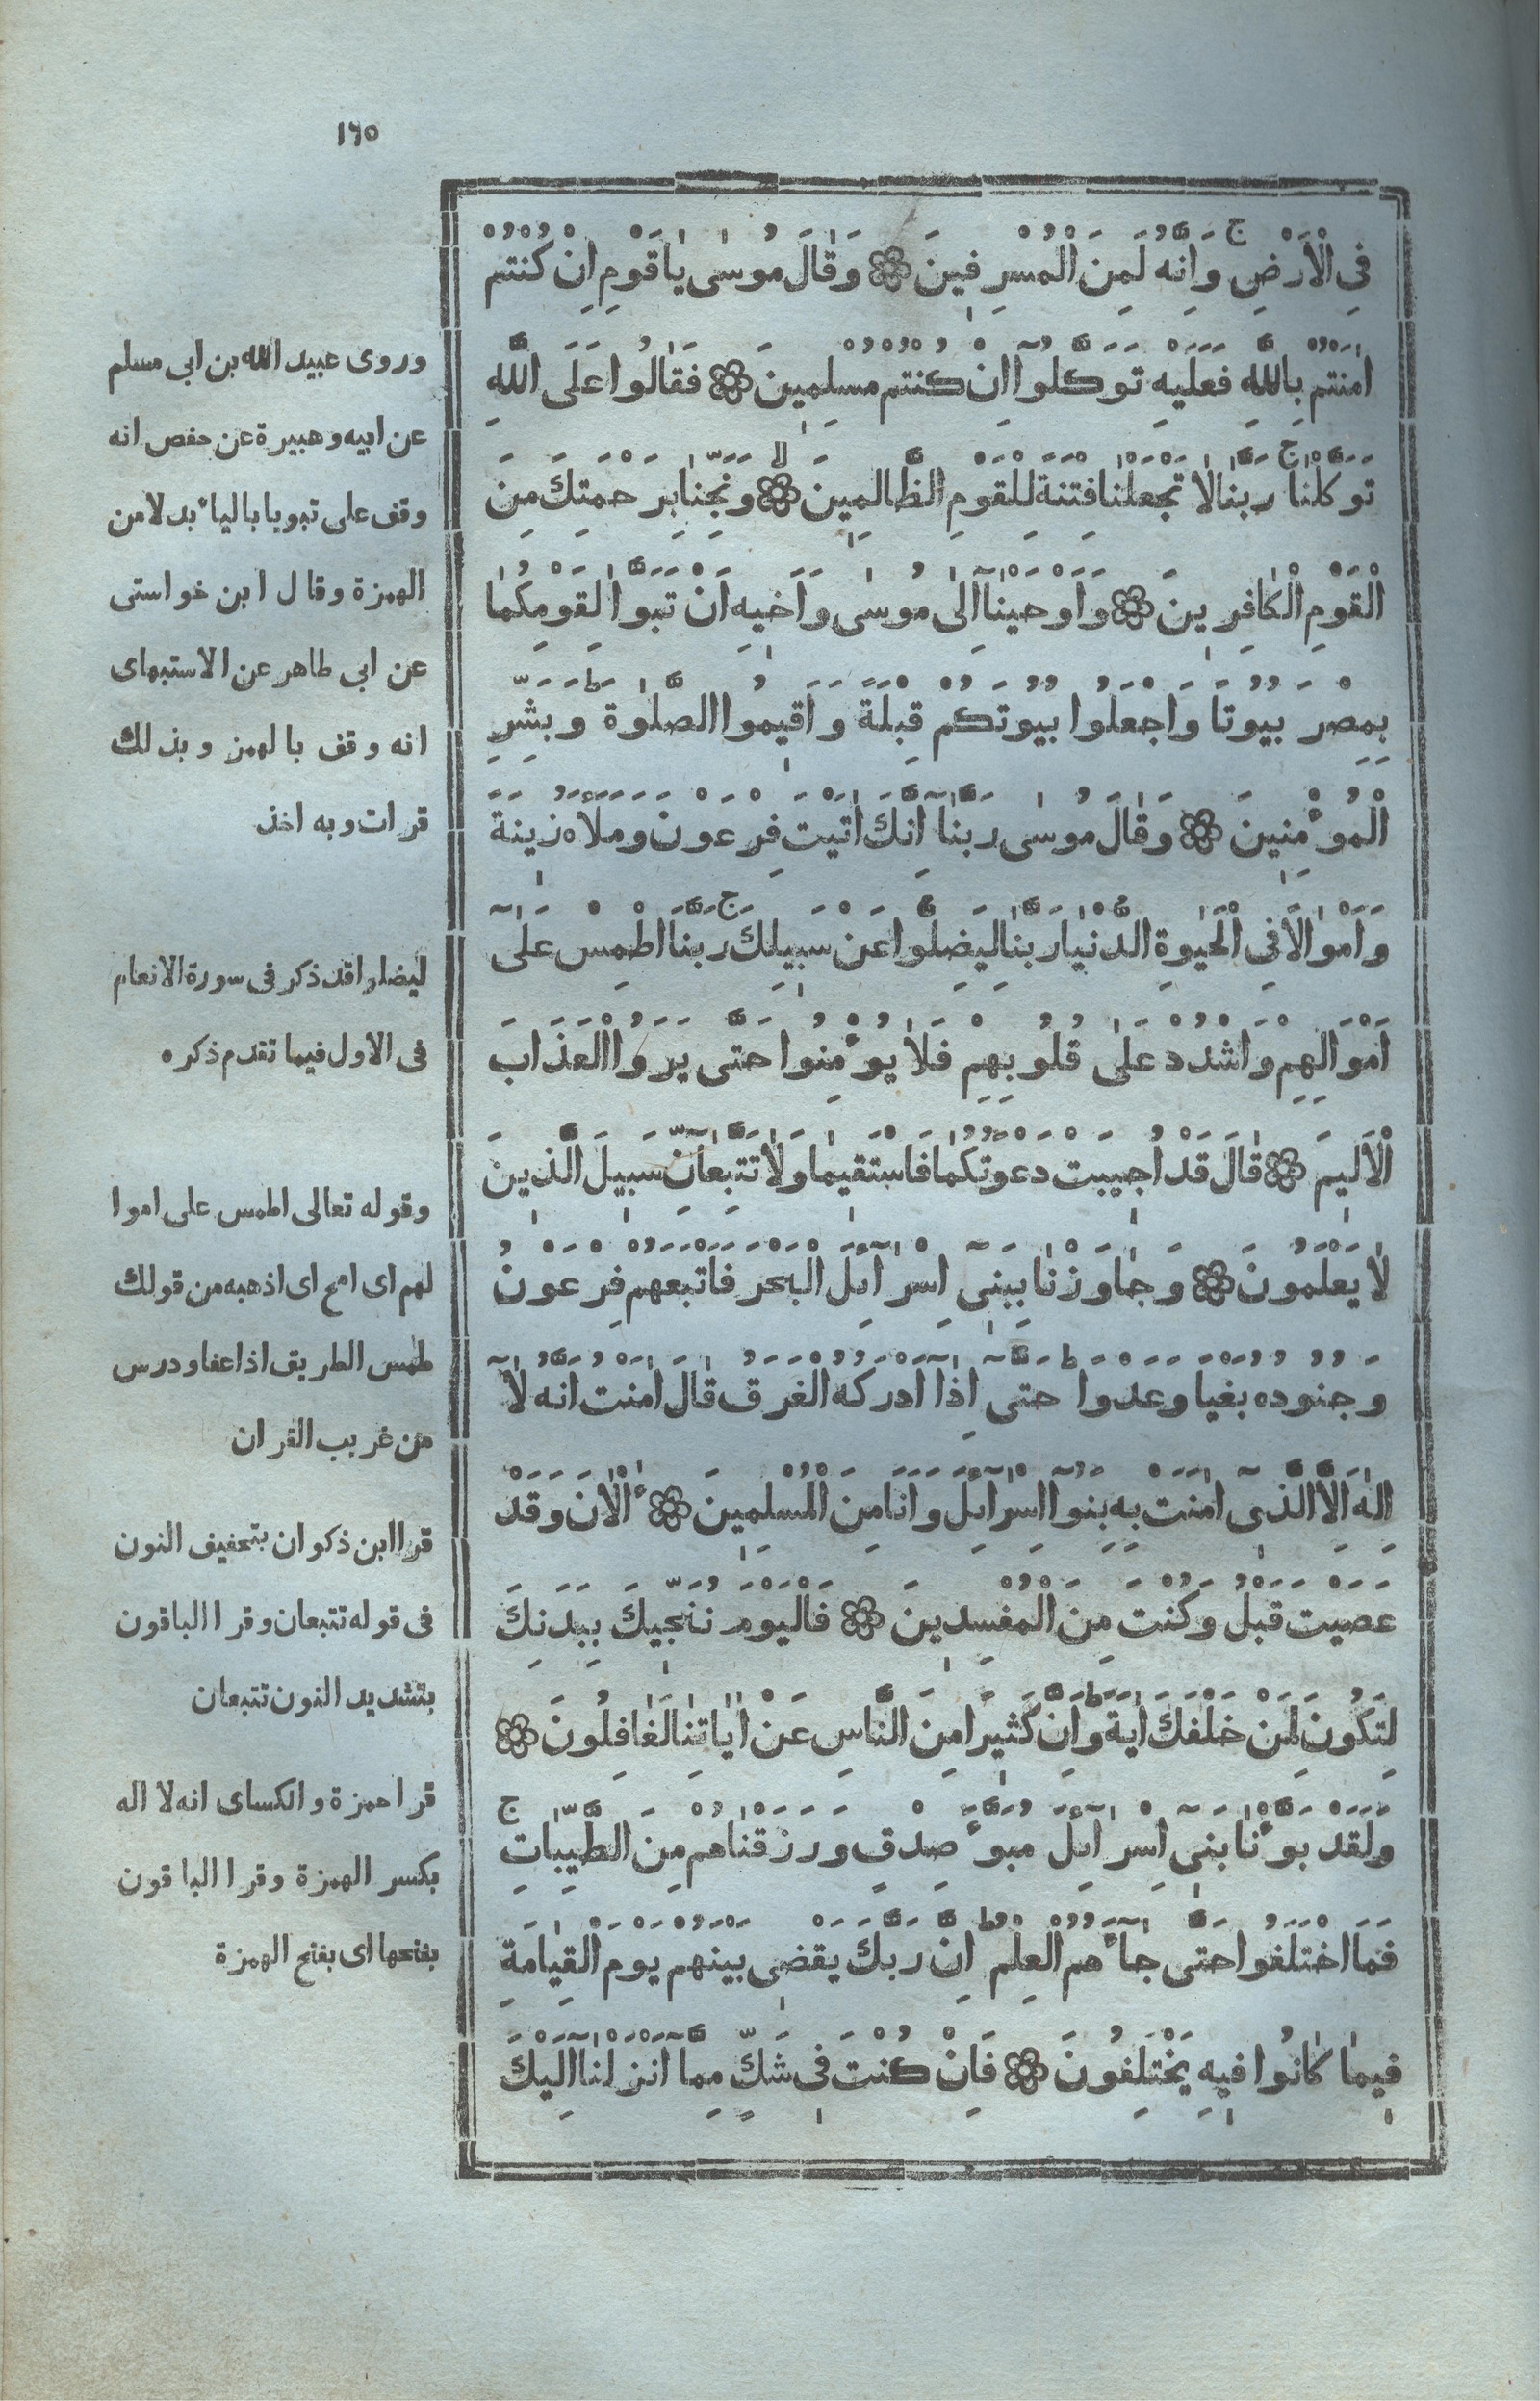 ١٦٥
فِى الْاَرْضِ ج وَاِنَّهُ لَمِنَ الْمُسْرِفٖينَ ۞ وَقَالَ مُوسٰى يَاقَوْمِ اِنْ كُنْتُمْ
اٰمَنْتُمْ بِاللّٰهِ فَعَلَيْهِ تَوَكَّلُوٓا اِنْ كُنْتُمْ مُسْلِمٖينَ ۞ فَقَالُوا عَلَى اللّٰهِ
تَوَكَّلْنَا ج رَبَّنَا لَا تَجْعَلْنَا فِتْنَةً لِلْقَوْمِ الظَّالِمٖينَ ۞ لا وَنَجِّنَا بِرَحْمَتِكَ مِنَ
الْقَوْمِ الْكَافِرٖينَ ۞ وَاَوْحَيْنَآ اِلٰى مُوسٰى وَاَخٖيهِ اَنْ تَبَوَّا لِقَوْمِكُمَا
بِمِصْرَ بُيُوتًا وَاجْعَلُوا بُيُوتَكُمْ قِبْلَةً وَاَقٖيمُوا الصَّلٰوةَ ط وَبَشِّرِ
الْمُؤْمِنٖينَ ۞ وَقَالَ مُوسٰى رَبَّنَآ اِنَّكَ اٰتَيْتَ فِرْعَوْنَ وَمَلَأَهُ زٖينَةً
وَاَمْوَالًا فِى الْحَيٰوةِ الدُّنْيَا رَبَّنَا لِيَضِلُّوا عَنْ سَبٖيلِكَ ج رَبَّنَا اطْمِسْ عَلٰٓى
اَمْوَالِهِمْ وَاشْدُدْ عَلٰى قُلُوبِهِمْ فَلَا يُؤْمِنُوا حَتّٰى يَرَوُا الْعَذَابَ
الْاَلٖيمَ ۞ قَالَ قَدْ اُجٖيبَتْ دَعْوَتُكُمَا فَاسْتَقٖيمَا وَلَا تَتَّبِعَآنِّ سَبٖيلَ الَّذٖينَ
لَا يَعْلَمُونَ ۞ وَجَاوَزْنَا بِبَنٖٓى اِسْرَآئِلَ الْبَحْرَ فَاَتْبَعَهُمْ فِرْعَوْنُ
وَجُنُودُهُ بَغْيًا وَعَدْوًا ط حَتّٰٓى اِذَآ اَدْرَكَهُ الْغَرَقُ قَالَ اٰمَنْتُ اَنَّهُ لَآ
اِلٰهَ اِلَّا الَّذٖٓى اٰمَنَتْ بِهِ بَنُوٓا اِسْرَآئِلَ وَاَنَا مِنَ الْمُسْلِمٖينَ ۞ ءٰٓالْاٰنَ وَقَدْ
عَصَيْتَ قَبْلُ وَكُنْتَ مِنَ الْمُفْسِدٖينَ ۞ فَالْيَوْمَ نُنَجّٖيكَ بِبَدَنِكَ
لِتَكُونَ لِمَنْ خَلْفَكَ اٰيَةً ط وَاِنَّ كَثٖيرًا مِنَ النَّاسِ عَنْ اٰيَاتِنَا لَغَافِلُونَ ۞
وَلَقَدْ بَوَّءْنَا بَنٖٓى اِسْرَآئِلَ مُبَوَّءَ صِدْقٍ وَرَزَقْنَاهُمْ مِنَ الطَّيِّبَاتِ ج
فَمَا اخْتَلَفُوا حَتّٰى جَآءَهُمُ الْعِلْمُ ط اِنَّ رَبَّكَ يَقْضٖى بَيْنَهُمْ يَوْمَ الْقِيَامَةِ
فٖيمَا كَانُوا فٖيهِ يَخْتَلِفُونَ ۞ فَاِنْ كُنْتَ فٖى شَكٍّ مِمَّآ اَنْزَلْنَآ اِلَيْكَ
وروى عبيد الله بن ابى مسلم
عن ابيه وهبيرة عن حفص انه
وقف على تبويا بالياء بدلا من
الهمزة وقال ابن خواستى
عن ابى طاهر عن الاستبهاى
انه وقف بالهمز وبذلك
قرات وبه اخذ
ليضلوا قد ذكر فى سورة الانعام
فى الاول فيما تقدم ذكره
وقوله تعالى اطمس على اموا
لهم اى امح اى اذهبه من قولك
طمس الطريق اذا عفا ودرس
من غريب القران
قرا ابن ذكوان بتخفيف النون
فى قوله تتبعان وقرا الباقون
بتشديد النون تتبعان
قرا حمزة والكساى انه لا اله
بكسر الهمزة وقرا الباقون
بفتحها اى بفتح الهمزة